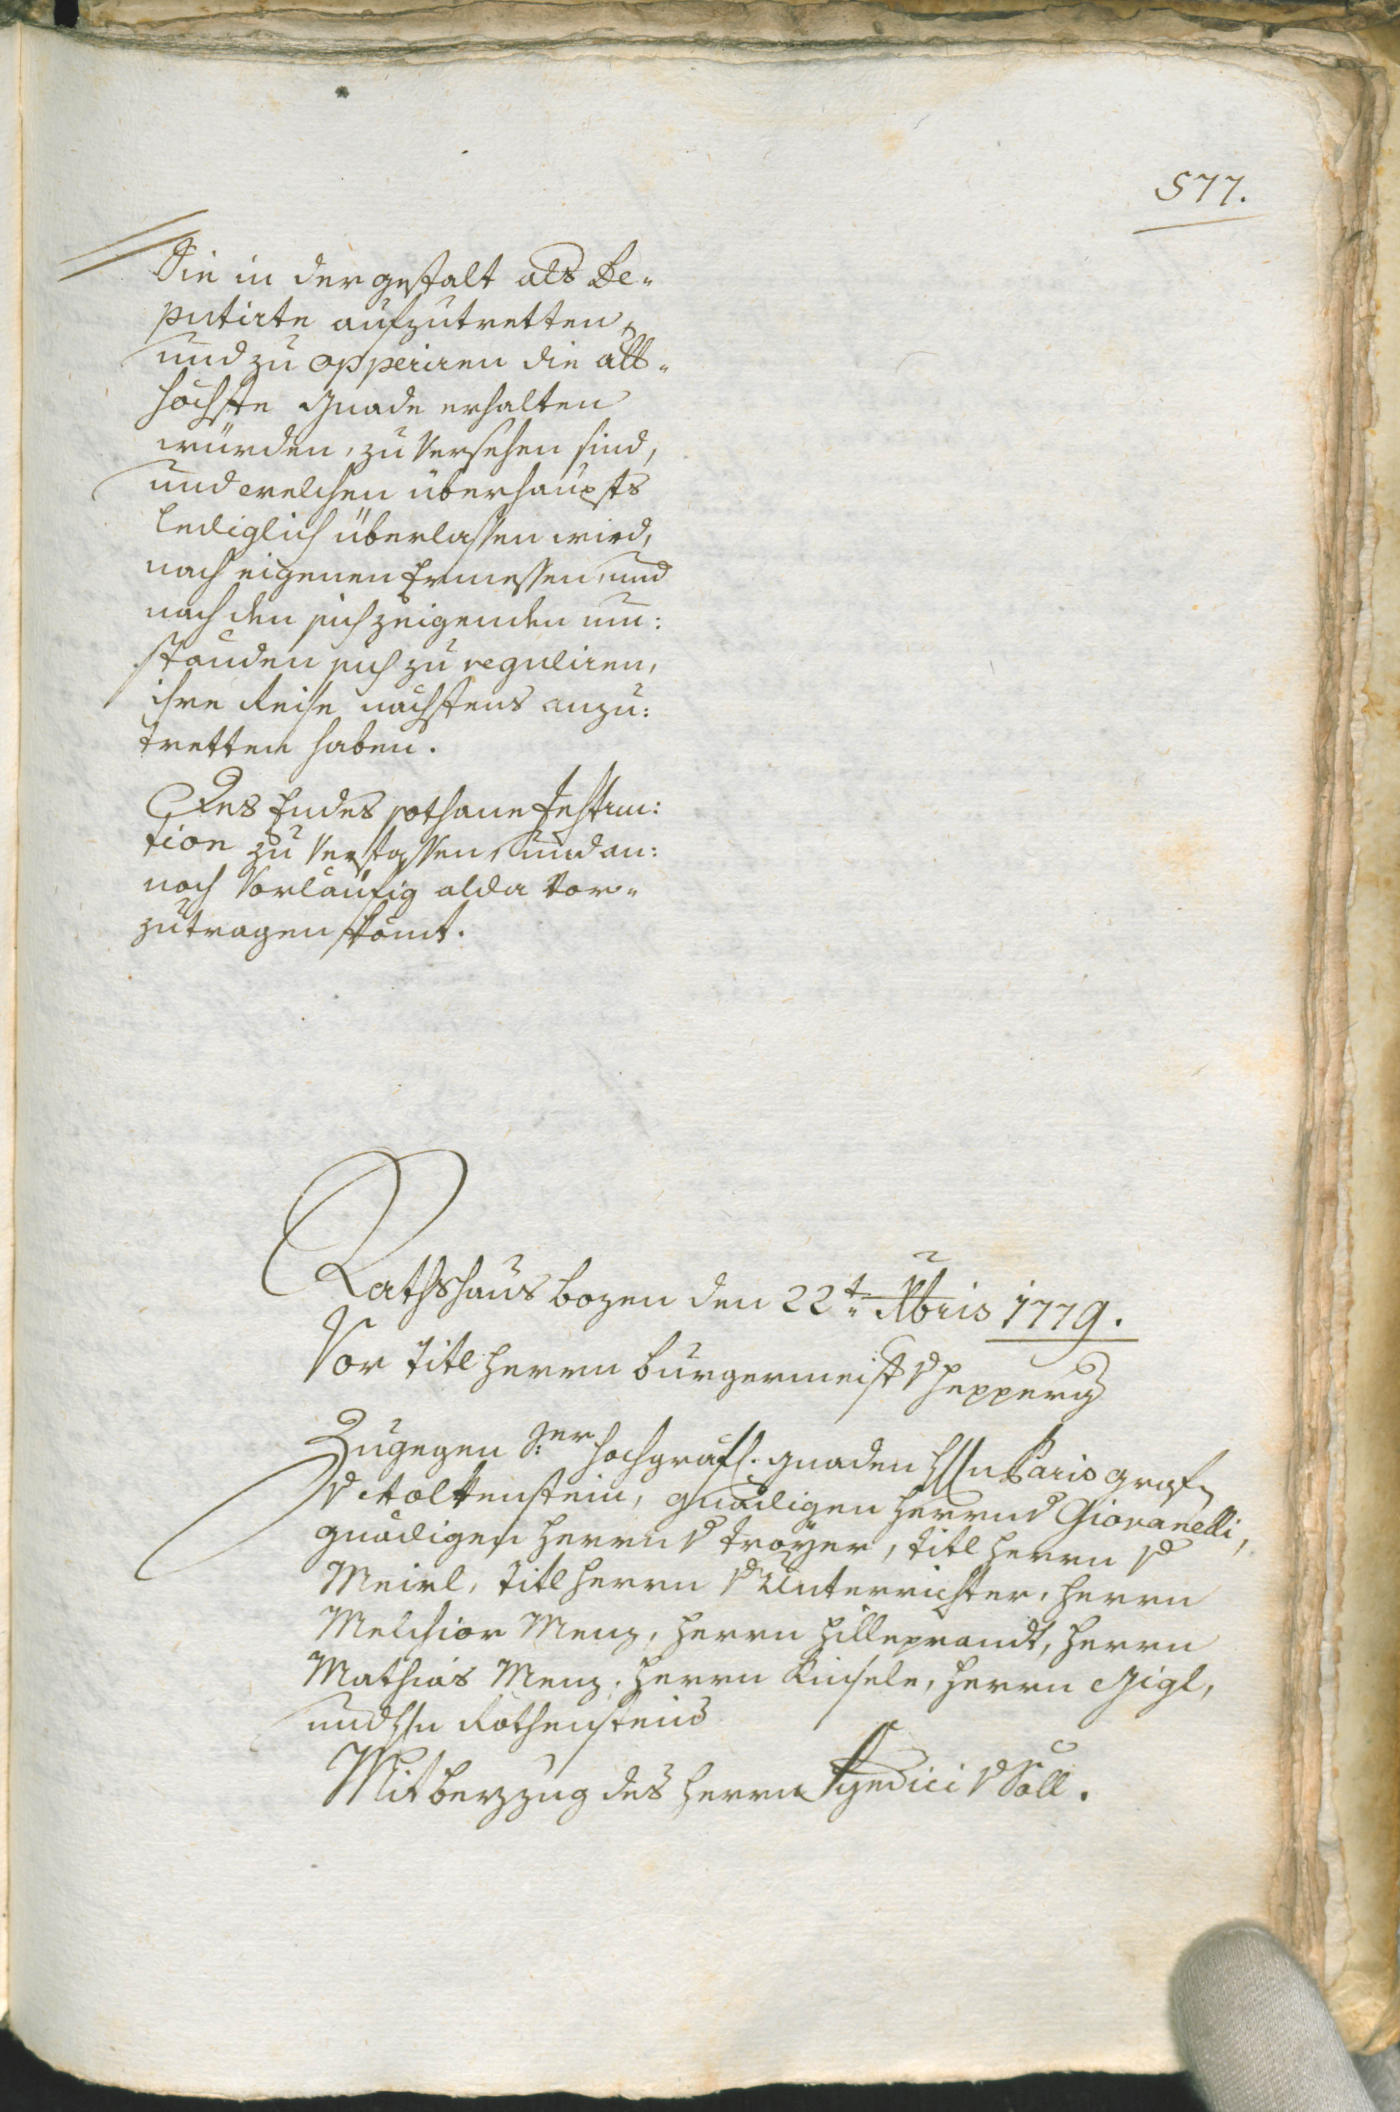 577.
Sie in der gestalt als De„
putirte aufzutretten,
und zu opperiren die all„
höchste Gnade erhalten
würden, zu versehen sind,
und welchen überhaupts
lediglich überlassen wird,
nach eigenen Ermessen, und
nach den sich zeigenden um:
ständen sich zu reguliren,
ihre Reise nächstens anzu:
tretten haben.
Des Endes sothane Instruc:
tion zu verfassen, und an:
noch vorläufig alda vor„
zutragen kömt.
Rathshaus Bozen den 22t. Xbris 1779.
Vor titl Herrn Burgermeist v Hepperg
Zugegen Sr. hochgräfl. Gnaden Hrn Paris Grafn
v Wolkenstein, gnädigen Herrn v Giovanelli,
gnädigen Herrn v Troÿer, titl Herrn v
Meirl, titl Herrn v Unterrichter, Herrn
Melchior Menz, Herrn Hilleprandt, Herrn
Mathias Menz, Herrn Kinsele, Herrn Gigl,
und Hrn Rothensteiner
Mit beyzug des Herrn Syndici v Söll.